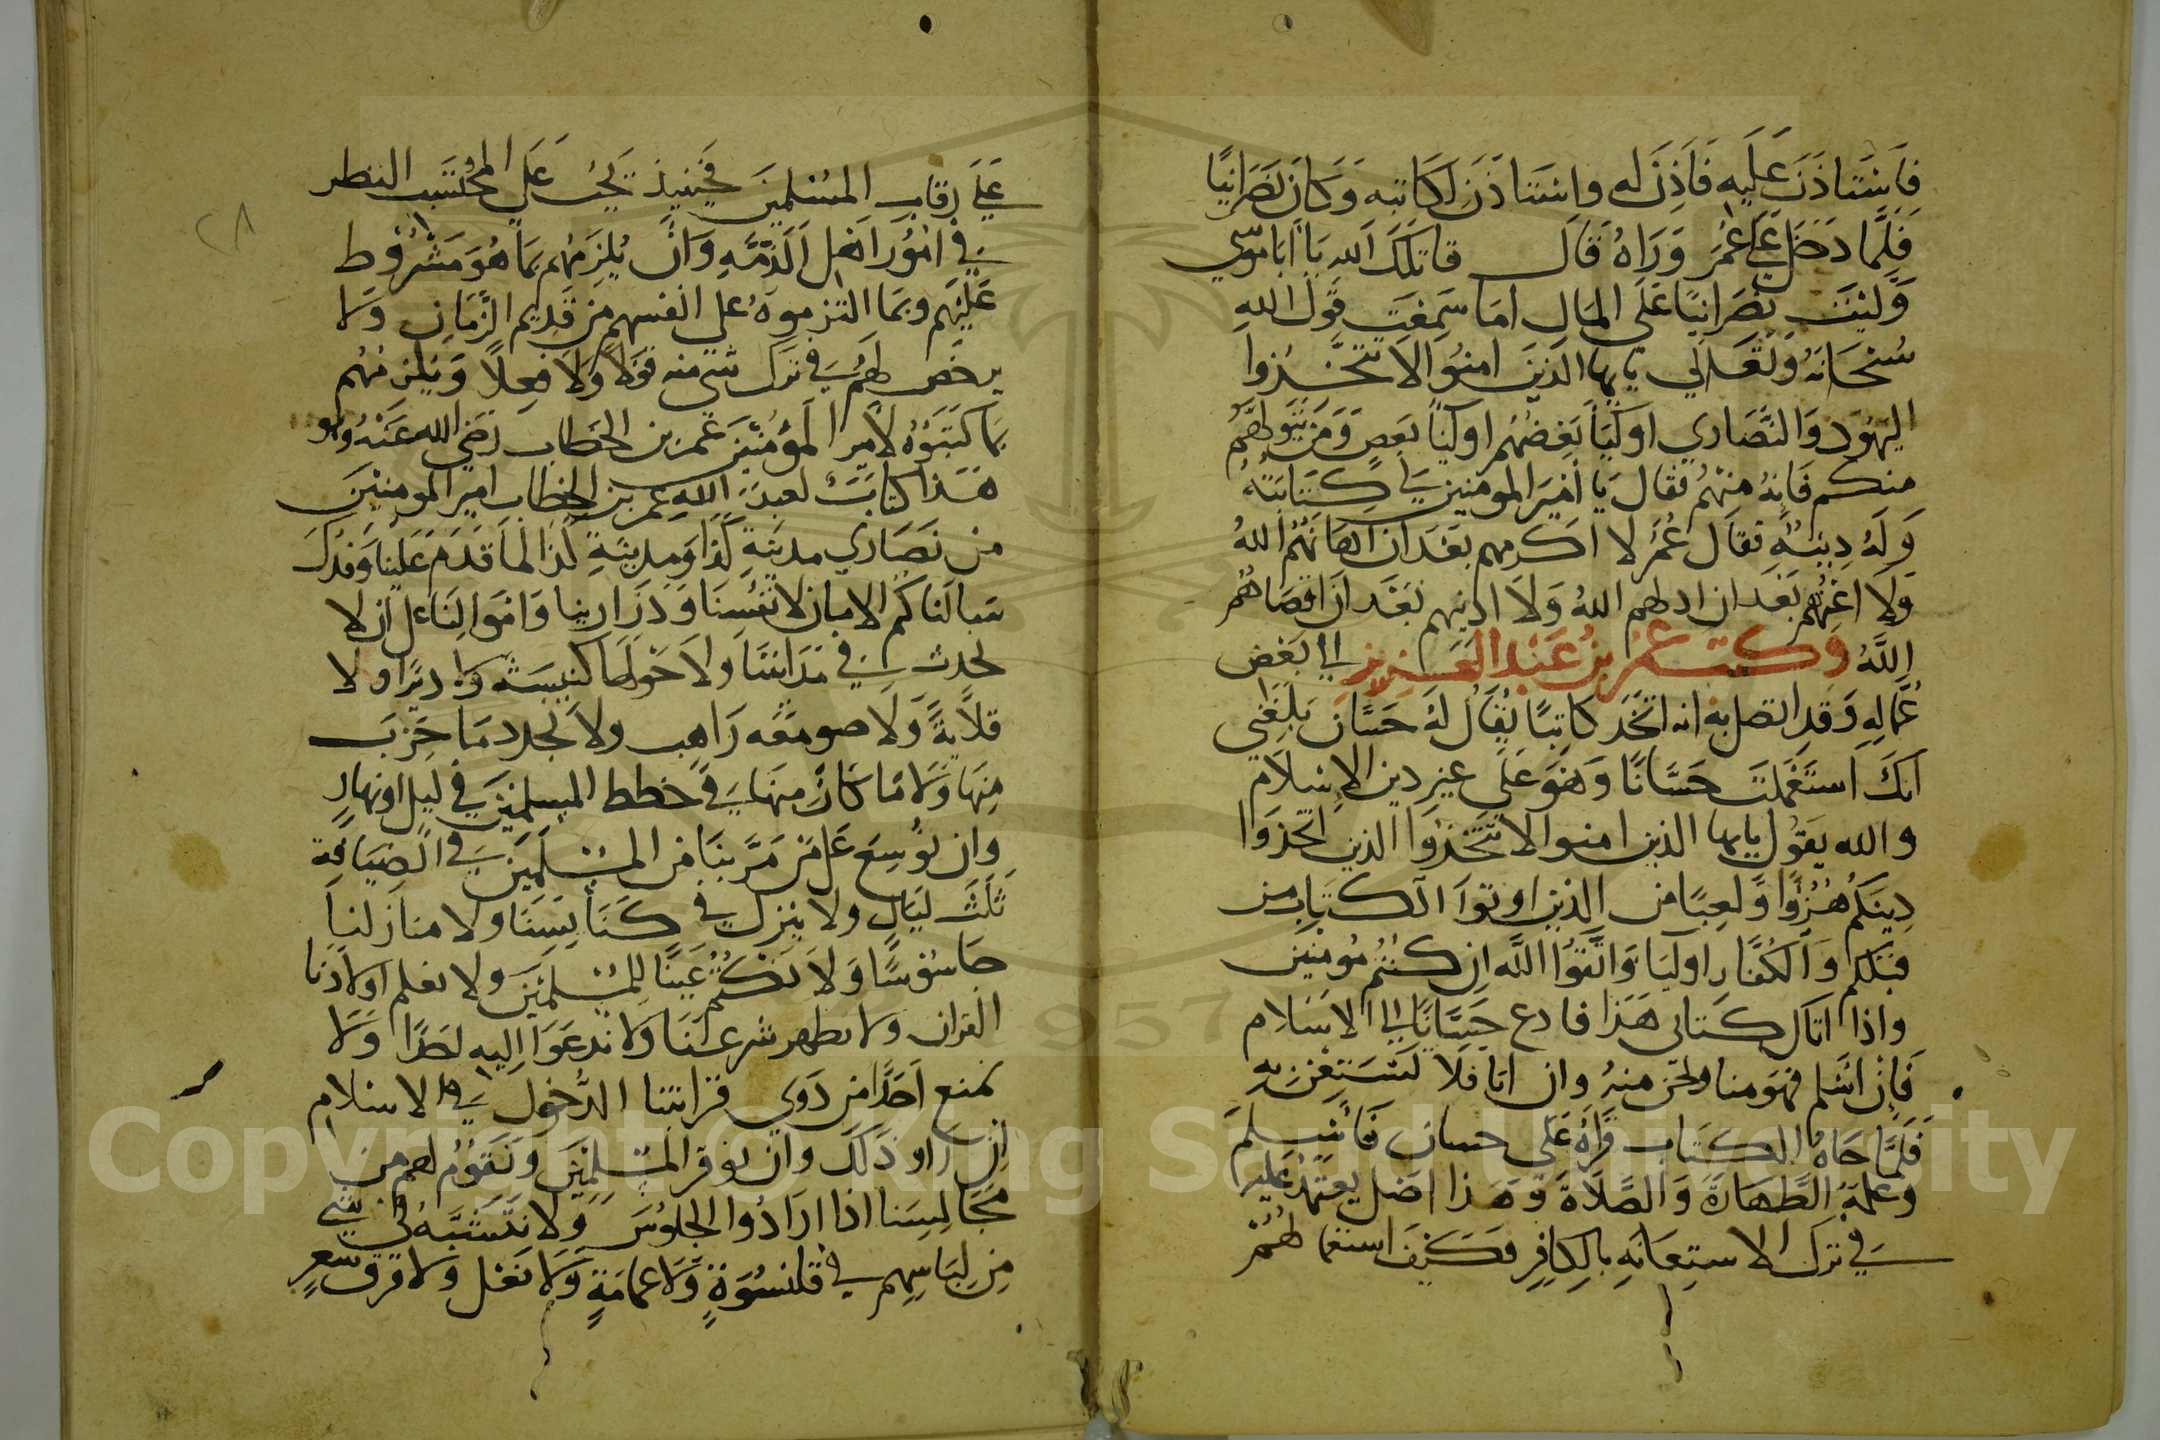 فاستاذن عليه فاذن له واستاذن لكاتبه وكان نصرانيا
فلما دخل على عمر وراه قال قاتلك الله يا ابا موسي
وليت نصرانيا على المال اما سمعت قول الله
سبحانه وتعالي يايها الذين امنوا لا تتخذوا
اليهود والنصاري اوليا بعضهم اوليا بعض ومن يتولهم
منكم فانه منهم فقال يا امير المومنين لي كتابته
وله دينه فقال عمر لا اكرمهم بعد ان اهانهم الله
ولا اعزهم بعد ان اذلهم الله ولا ادنيهم بعد ان اقصاهم
الله وكتب عمر بن عبد العزيز الي بعض
عماله وقد اتصل به انه اتخذ كاتبا يقال له حسان بلغني
انك استعملت حسانا وهو على غير دين الاسلام
والله يقول يايها الذين امنوا لا تتخذوا الذين اتخذوا
دينكم هزوا ولعبا من الذين اوتوا الكتاب من
قبلكم والكفار اوليا واتقوا الله ان كنتم مومنين
واذا اتاك كتابي هذا فادع حسانا الي الاسلام
فان اسلم فهو منا ونحن منه وان ابا فلا تستعن به
فلما جاه الكتاب قراه على حسان فاسلم
وعلمه الطهارة والصلاة وهذا اصل يعتمد عليه
في ترك الاستعانه بالكافر فكيف استعمالهم
على رقاب المسلمين فحينيذ يجب على المحتسب النظر
في امور اهل الذمه وان يلزمهم بما هو مشروط
عليهم وبما التزموه على انفسهم من قديم الزمان ولا
يرخص لهم في ترك شي منه قولا ولا فعلا ويلزمهم
بما كتبوه لامير المؤمنين عمر بن الخطاب رضي الله عنه وهو
هذا كتاب لعبد الله عمر بن الخطاب امير المومنين
من نصاري مدينة كذا ومدينة كذا لما قدم علينا وفدك
سالناكم الامان لانفسنا وذرارينا واموالنا على ان لا
نحدث في مداينا ولا حولها كنيسة ولا ديرا ولا
قلاية ولا صومعه راهب ولا نجدد ما خرب
منها ولا ما كان منها في خطط المسلمين في ليل او نهار
وان نوسع على من مر بنا من المسلمين في الضيافة
ثلث ليال ولا ينزل في كنايسنا ولا منازلنا
جاسوسا ولا نكتم عينا للمسلمين ولا نعلم اولادنا
القران ولا نظهر شرعنا ولا ندعوا اليه احدا ولا
نمنع احدا من ذوي قرابتنا الدخول في الاسلام
ان ارادو ذلك وان نوقر المسلمين ونقوم لهم من
مجالسنا اذا ارادوا الجلوس ولا نتشبه في شي
من لباسهم في قلنسوة ولا عمامة ولا نعل ولا فرق شعر
٢٨
Copyright © King Saud University
1957